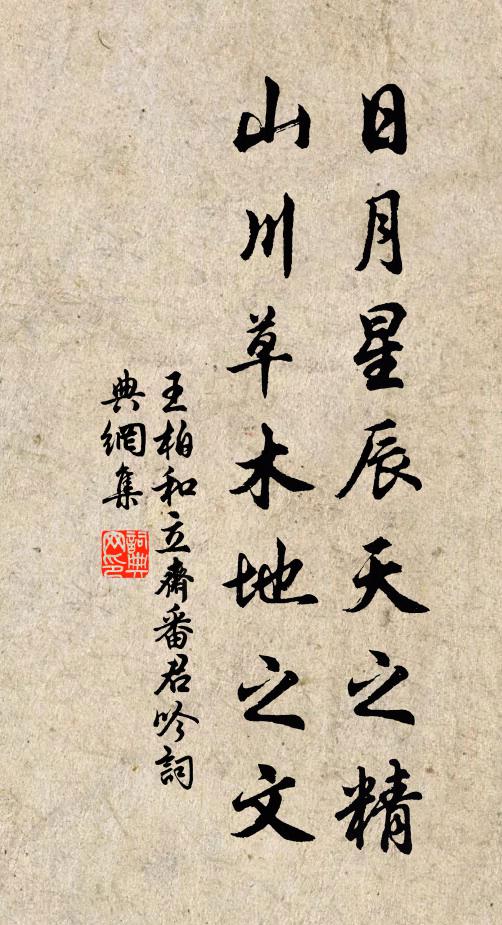 日月星辰天之精
山川草木地之文
王柏和立齋番君吟詞
典網集
詞典网印